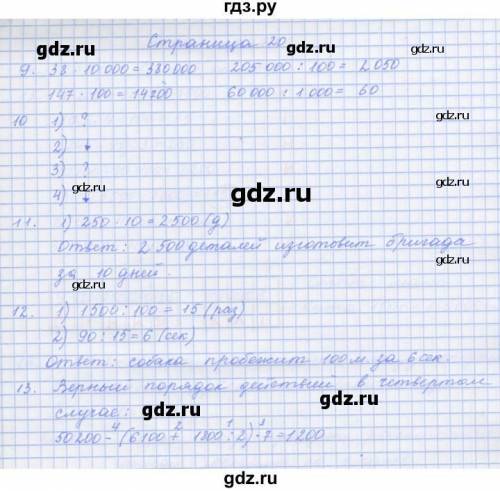 гдз.ру
gdz.ru gdz.ru gdz.ru
Страница 20
9. 38 · 10 000 = 380000 205 000 : 100 = 2 050
147 · 100 = 14700 60 000 : 1 000 = 60
10 1) ?
2) ↓
3) ?
4) ↓
gdz.ru gdz.ru
gdz.ru
11. 1) 250 · 10 = 2500 (д)
Ответ: 2 500 деталей изготовит бригада
за 10 дней.
gdz.ru gdz.ru
12. 1) 1500 : 100 = 15 (раз)
2) 90 : 15 = 6 (сек)
Ответ: собака пробежит 100 м за 6 сек.
13. Верный порядок действий в четвертом
случае:
gdz.ru gdz.ru
50200 - (6100 + 1800 : 2) · 7 = 1200
gdz.ru